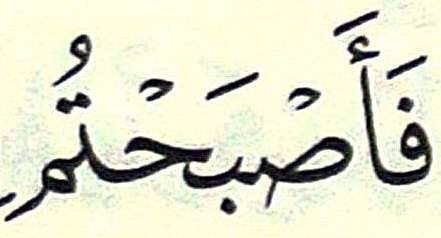 فَأَصْبَحْتُم